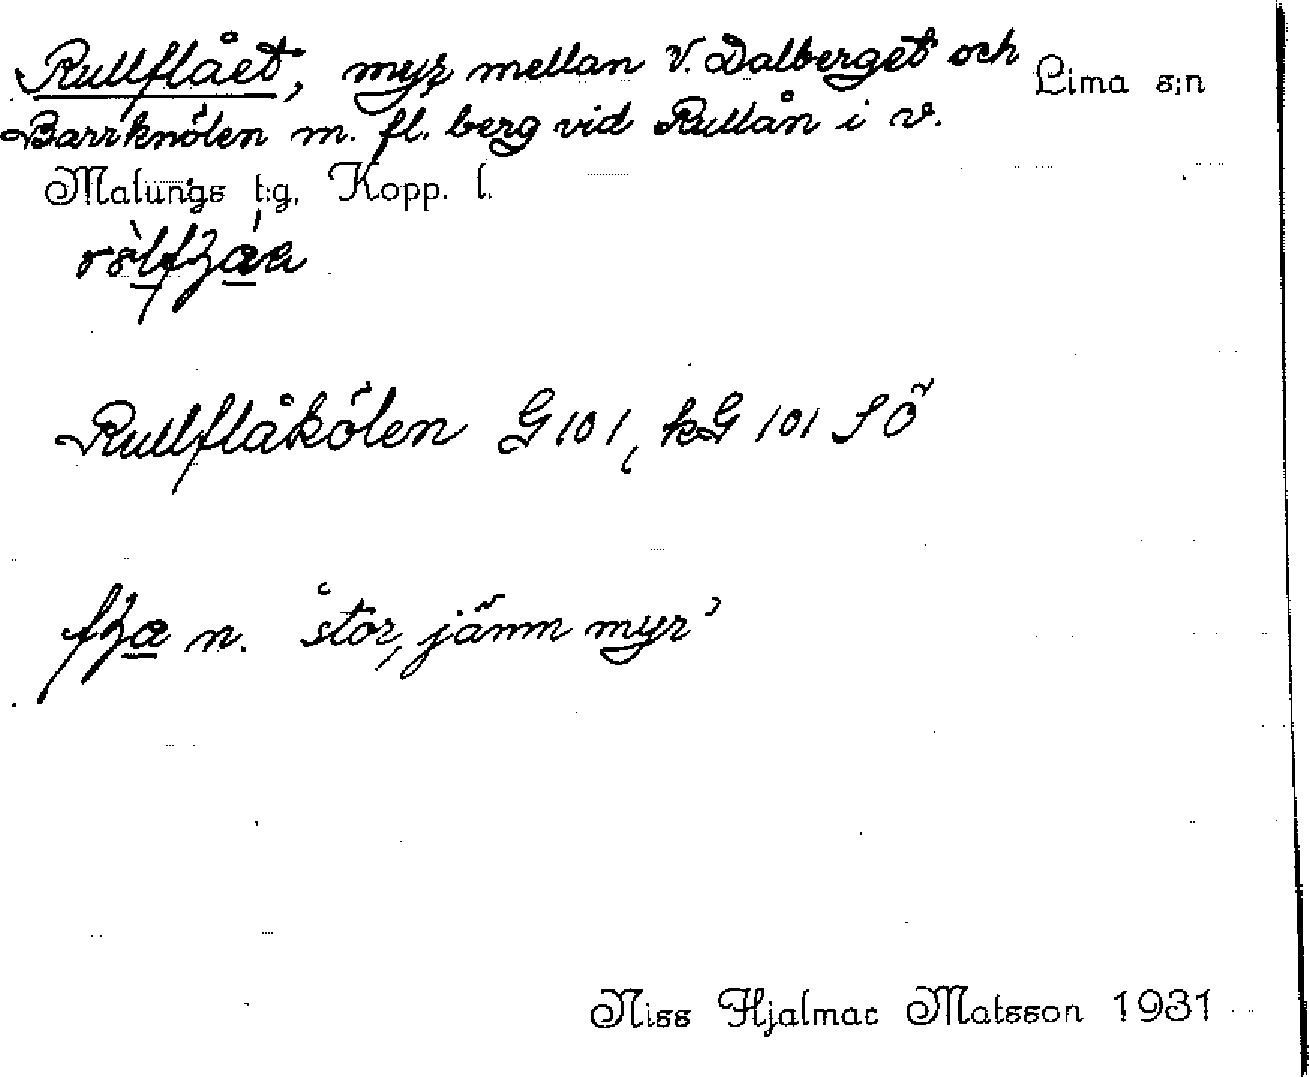 Rullflået, myr mellan V. Dalberget och Lima s:n
Barrknölen m. fl. berg vid Rullån i v.
Malungs t:g, Kopp. l.
Rullflåkölen G 101, kG 101 SÖ
n. 'stor, jämn myr'
Niss Hjalmar Matsson 1931